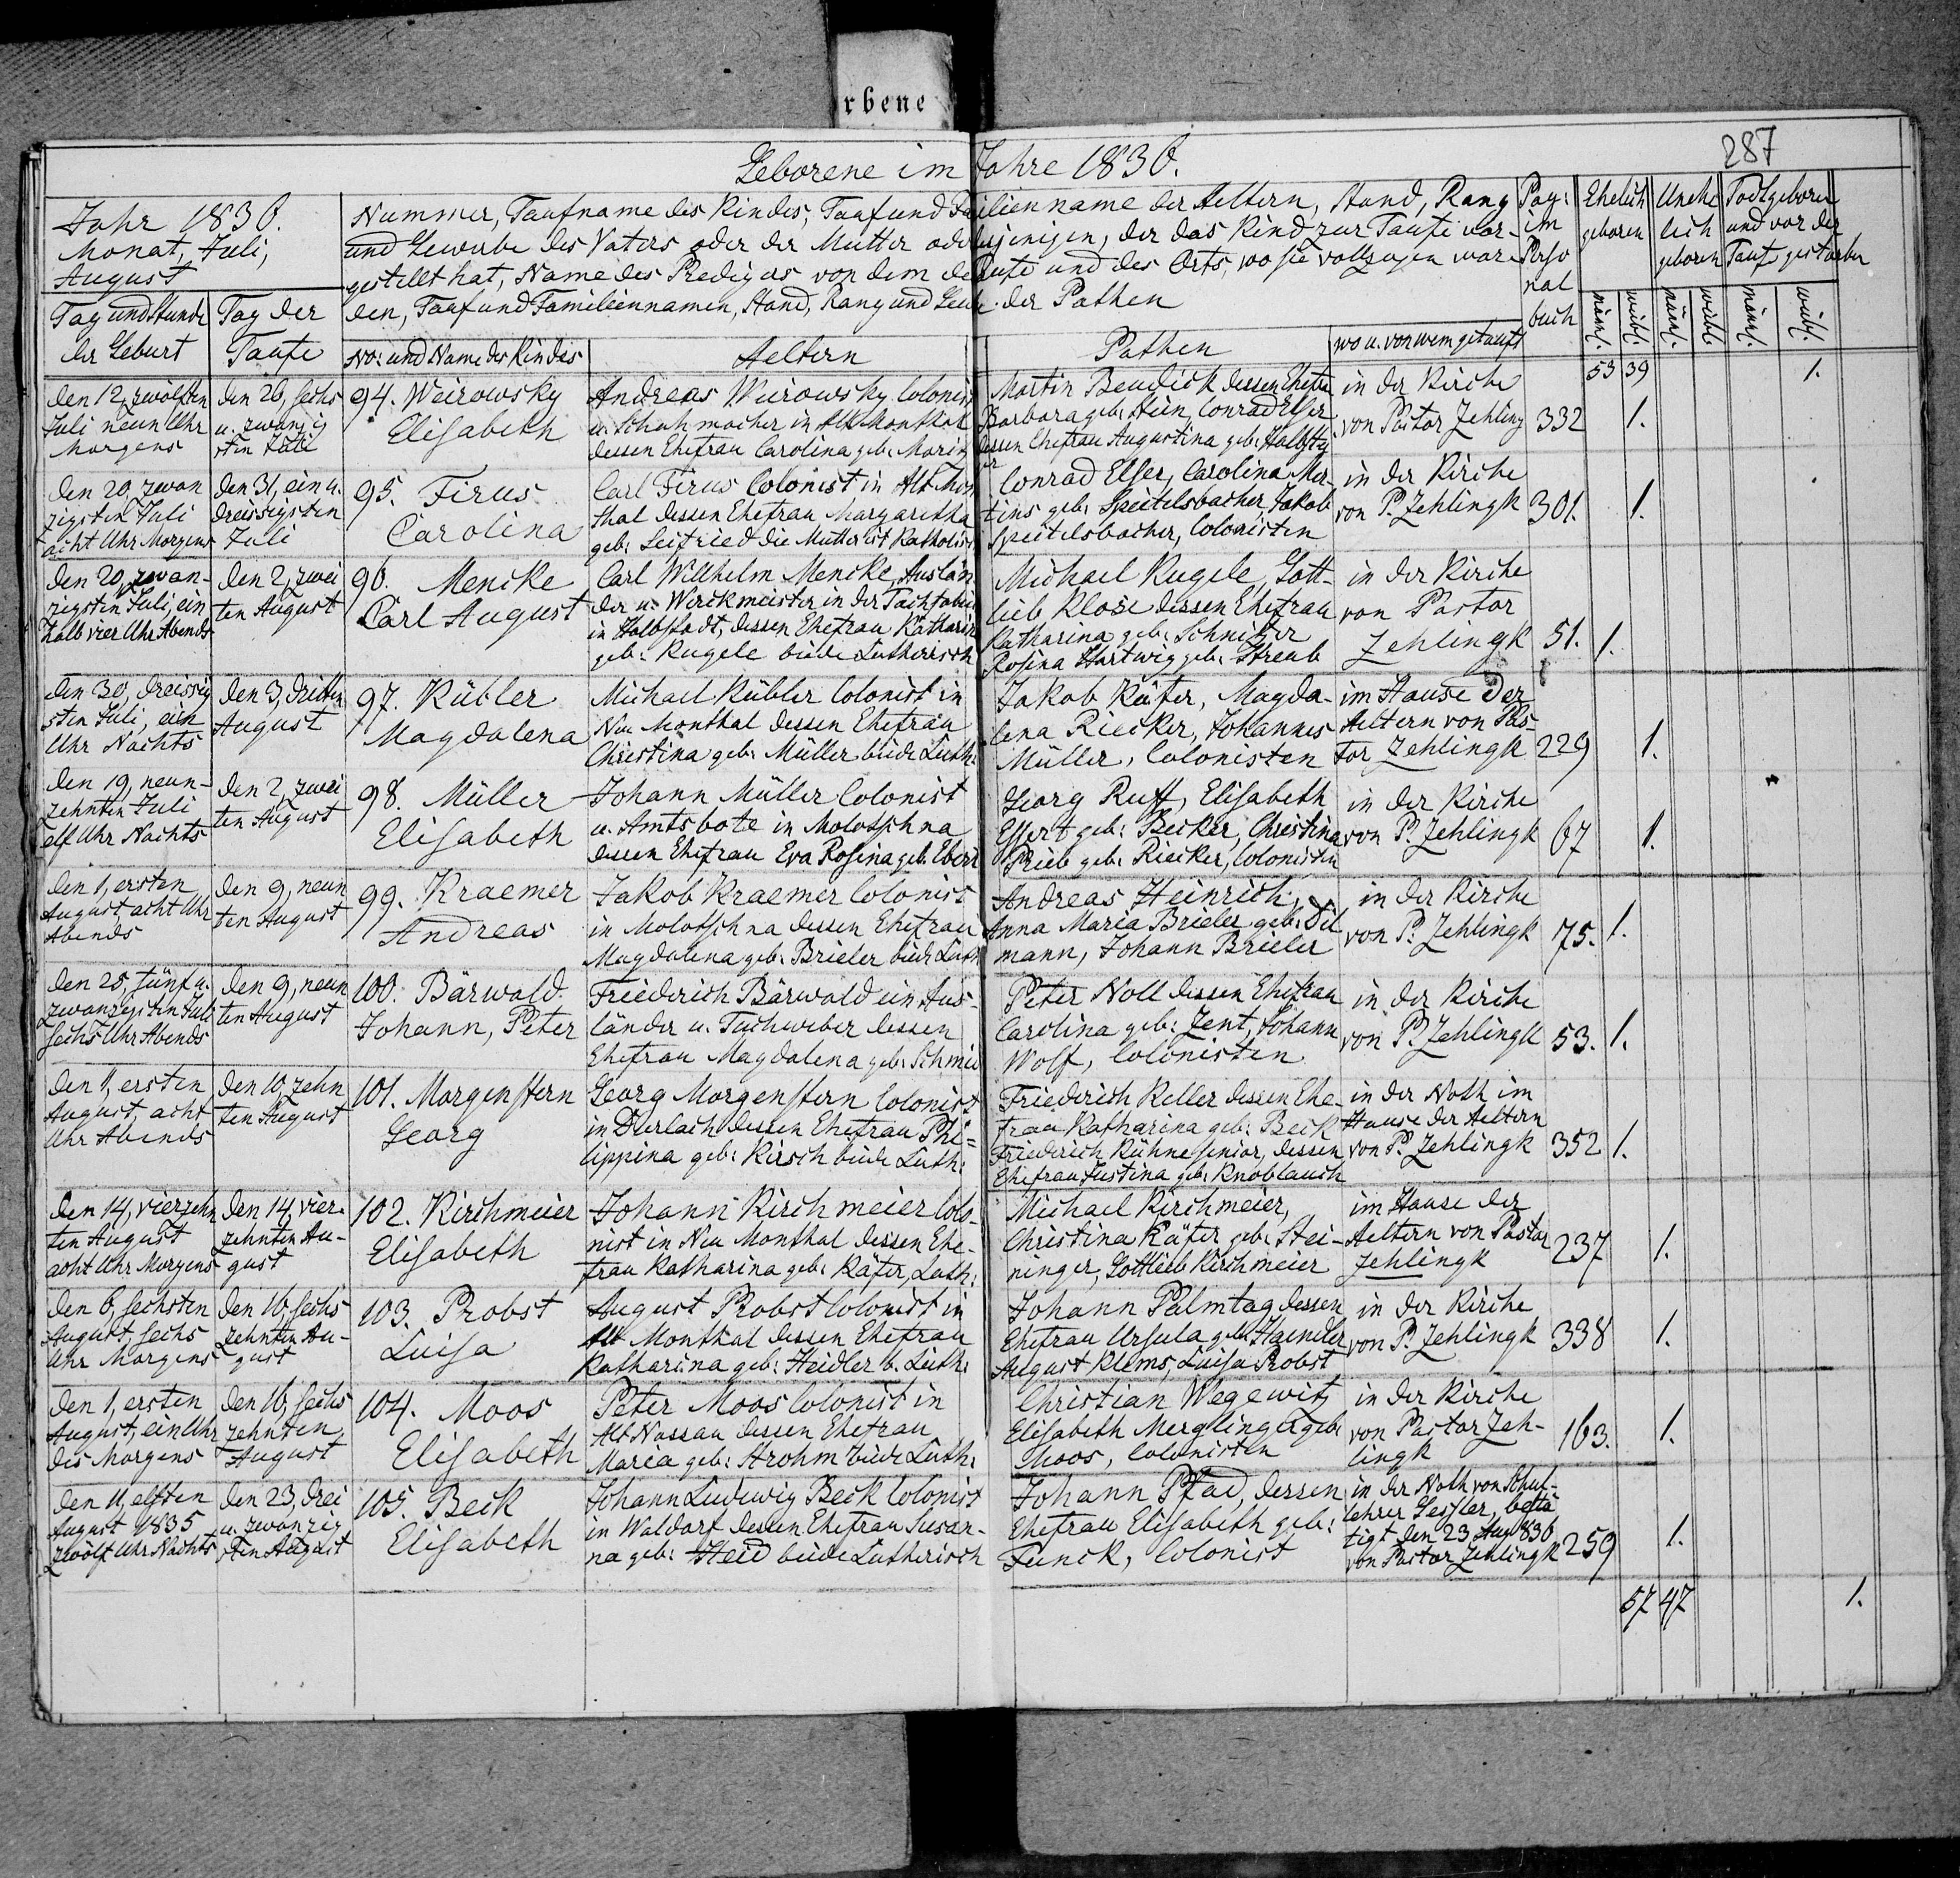 rbene
287
Geborene im Jahre 1836.
Jahr 1836.
Monat, Juli,
August
Nummer, Taufname des Kindes, Tauf und Familienname der Aeltern, Stand, Rang
und Gewerbe des Vaters oder der Mutter oder desjenigen, der das Kind zur Taufe vor-
gestellt hat, Name des Predigers von dem die Taufe und des Orts, wo sie vollzogen wor-
den, Tauf und Familiennamen, Stand, Rang und Gew. der Pathen
Pag:
im
Perso
nal
buch
Ehelich
geboren
Unehe
lich
geboren
Todtgeboren
und vor der
Tauf gestorben
Tag und Stunde
der Geburt
Tag der
Taufe
No: und Name des Kindes
Aeltern
Pathen
wo u. von wem getauft
männl.
weibl.
männl.
weibl.
männl.
weibl.
53 39 1.
den 12, zwölften
Juli neun Uhr
Morgens
den 26, sechs
u. zwanzig
sten Juli
94. Weirowsky
Elisabeth
Andreas Weirowsky Colonist
u. Schuhmacher in Alt Monthal
dessen Ehefrau Carolina geb:
Martin Bendick dessen Ehefra
Barbara geb: Hein, Conrad Elser
dessen Ehefrau Augustina geb:
in der Kirche
von Pastor Zehling
332 1.
den 20, zwan
zigsten Juli
acht Uhr Morgens
den 31, ein u.
dreissigsten
Juli
95. Firus
Carolina
Carl Firus Colonist in Alt Mon
thal dessen Ehefrau Margaretha
geb: Seifried die Mutter ist Katholisch
Conrad Elser, Carolina Mer-
tins geb: Speitelsbacher, Jakob
Speitelsbacher, Colonisten
in der Kirche
von P. Zehlingk
301. 1.
den 20, zwan-
zigsten Juli, ein
halb vier Uhr Abends
den 2, zwei
ten August
96. Mencke
Carl August
Carl Willhelm Mencke, Auslän
der u. Werckmeister in der Tuchfabri
in Halbstadt, dessen Ehefrau Katharin
geb: Kugele beide Lutherisch
Michael Kugele, Gott-
lieb Klose dessen Ehefrau
Katharina geb: Schnitzer
Rosina Hartwig geb: Streub
in der Kirche
von Pastor
Zehlingk
51. 1.
den 30, dreissig
sten Juli, ein
Uhr Nachts
den 3, dritten
August
97. Kübler
Magdalena
Michael Kübler Colonist in
Neu Monthal dessen Ehefrau
Christina geb: Müller beide Luth:
Jakob Käfer, Magda-
lena Riecker, Johannes
Müller, Colonisten
im Hause der
Aeltern von Pas-
tor Zehlingk
229 1.
den 19, neun-
zehnten Juli
elf Uhr Nachts
den 2, zwei
ten August
98. Müller
Elisabeth
Johann Müller Colonist
u. Amtsbote in Molotschna
dessen Ehefrau Eva Rosina geb. Ebert
Georg Ruff, Elisabeth
Essert geb: Becker, Christina
Prieb geb: Riecker, Colonisten
in der Kirche
von P. Zehlingk
67 1.
den 1, ersten
August, acht Uhr
Abends
den 9, neun
ten August
99. Kraemer
Andreas
Jakob Kraemer Colonist
in Molotschna dessen Ehefrau
Magdalena geb: Brieler beide Luth
Andreas Heinrich,
Anna Maria Brieler geb: Dil
mann, Johann Brieler
in der Kirche
von P. Zehlingk
75. 1.
den 25, fünf u.
zwanzigsten Juli
sechs Uhr Abends
den 9, neun
ten August
100. Bärwald
Johann, Peter
Friederich Bärwald ein Aus-
länder u. Tuchweber dessen
Ehefrau Magdalena geb: Schmid
Peter Noll dessen Ehefrau
Carolina geb: Zent, Johann
Wolf, Colonisten
in der Kirche
von P. Zehlingk
53. 1.
den 1, ersten
August, acht
Uhr Abends
den 10, zehn
ten August
101. Morgenstern
Georg
Georg Morgenstern Colonist
in Durlach dessen Ehefrau Phi=
lippina geb: Kirsch beide Luth:
Friederich Keller dessen Ehe-
frau Katharina geb: Beck
Friederich Kühne senior, dessen
Ehefrau Justina geb: Knoblauch
in der Noth im
Hause der Aeltern
von P. Zehlingk
352 1.
den 14, vierzehn
ten August
acht Uhr Morgens
den 14, vier-
zehnten Au-
gust
102. Kirchmeier
Elisabeth
Johann Kirchmeier Colo-
nist in Neu Monthal dessen Ehe-
frau Katharina geb: Käfer, Luth:
Michael Kirchmeier,
Christina Käfer geb: Stei-
ninger, Gottlieb Kirchmeier
im Hause der
Aeltern von Pastor
Zehlingk
237 1.
den 6, sechsten
August, sechs
Uhr Morgens
den 16, sechs
zehnten Au-
gust
103. Probst
Luisa
August Probst Colonist in
Alt Monthal dessen Ehefrau
Katharina geb: Heidler b. Luth:
Johann Palmtag, dessen
Ehefrau Ursula geb: Haendler
August Klems, Luisa Probst
in der Kirche
von P. Zehlingk
338 1.
den 1, ersten
August, ein Uhr
des Morgens
den 16, sechs
zehnten
August
104. Moos
Elisabeth
Peter Moos Colonist in
Alt Nassau dessen Ehefrau
Maria geb: Strohm beide Luth:
Christian Wegewitz
Elisabeth Merglinger geb:
Moos, Colonisten
in der Kirche
von Pastor Zeh-
lingk
163. 1.
den 11, elften
August 1835
zwölf Uhr Nachts
den 23, drei
u. zwanzig
sten August
105. Beck
Elisabeth
Johann Ludewig Beck Colonist
in Waldorf dessen Ehefrau Susan-
na geb: Heid beide Lutherisch
Johann Pfad, dessen
Ehefrau Elisabeth geb:
Funck, Colonist
in der Noth von Schul-
lehrer Gessler, bestä
tigt den 23 Aug 1836
von Pastor Zehlingk
259 1.
57 47 1.